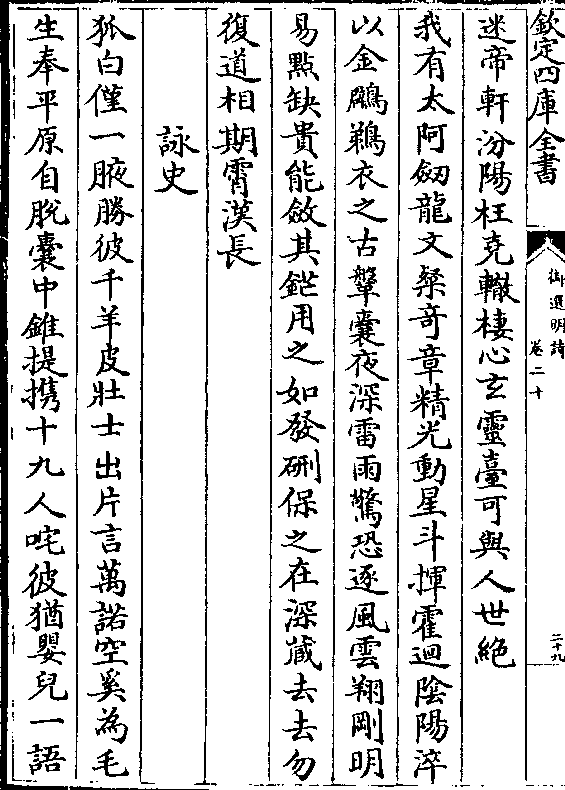 欽定四庫全書
御選明詩
卷二十
二十九
迷帝軒汾陽枉堯轍棲心玄靈臺可與人世絶
我有太阿劒龍文粲竒章精光動星斗揮霍迴陰陽淬
以金鸊鵜衣之古鞶囊夜深雷雨驚恐逐風雲翔剛明
易㸃缺貴能斂其鋩用之如發硎保之在深蔵去去勿
復道相期霄漢長
詠史
狐白僅一腋勝彼千羊皮壯士出片言萬諾空奚為毛
生奉平原自脫囊中錐提携十九人咤彼猶嬰兒一語